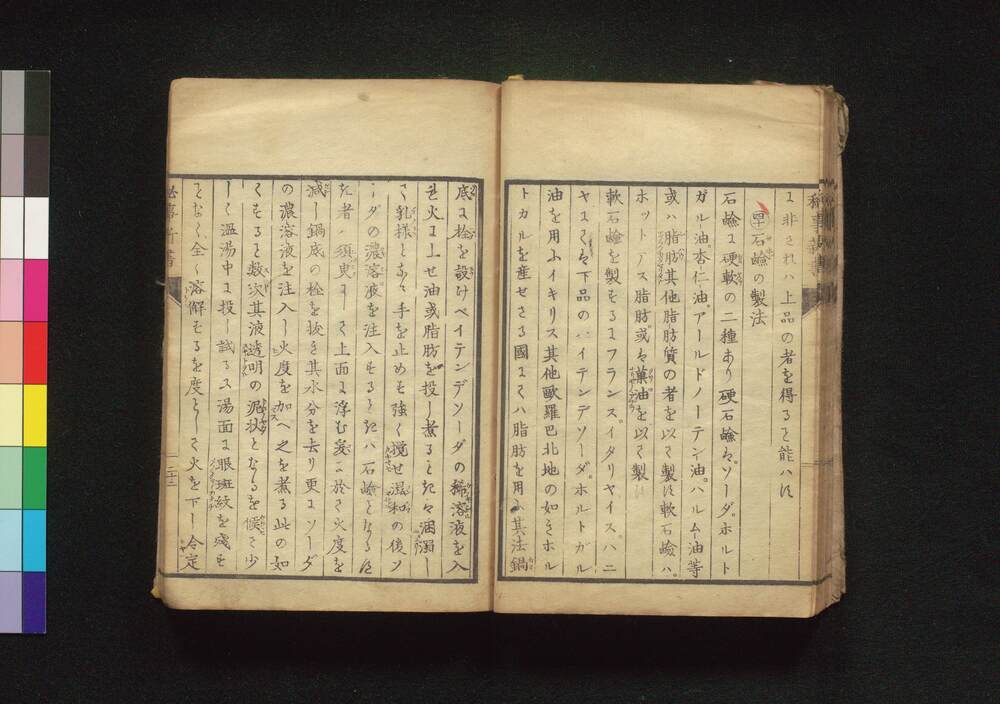 ヱ非されハ上品の者を得ると能ハす
四十 石鹼の製法
石鹼ヱ硬軟の二種あり硬石鹼ハソーダ。ホルト
ガル油。杏仁油。アールドノーテン油。ハルム油等
或ハ脂肪其他脂肪質の者を以て製す軟石鹼ハ。
ホットアス脂肪或ハ菓油を以て製
軟石鹼を製するヱフランス。イタリヤイス。ハニ
ヤヱてハ下品のハイテンデソーダ。ホルトガル
油を用ふイキリス其他歐羅巴北地の如きホル
トカルを産せさる國ヱてハ脂肪を用ふ其法鍋
底ヱ栓を設けベイテンデソーダの稀溶液を入
れ火ヱ上せ油或脂肪を投し煮るときハ溷濁し
て乳様となる手を止めす強く攪せ混和の後ソ
ーダの濃溶液を注入するときハ石鹼となるは
た者ハ須臾ヱして上面ヱ浮む爰ヱ於て火度を
減し鍋底の栓を抜き其水分を去り更ヱソーダ
の濃溶液を注入し火度を加へ之を煮る此の如
くすると数次其液透明の泥状となるを候て少
しく温湯中ヱ投し試るヱ湯面ヱ眼斑紋を残す
となく全く溶解するを度として火を下し令定